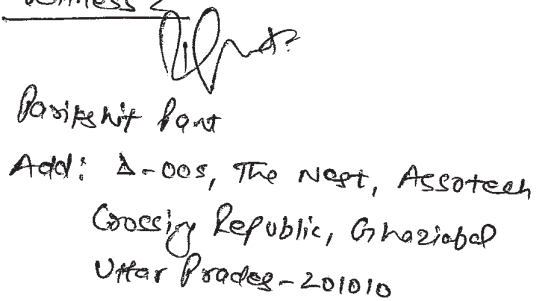 Witness 2
Parikshit Pant
Add: A-005, The Nest, Assotech
Crossing Republic, Ghaziabad
Uttar Prades-201010